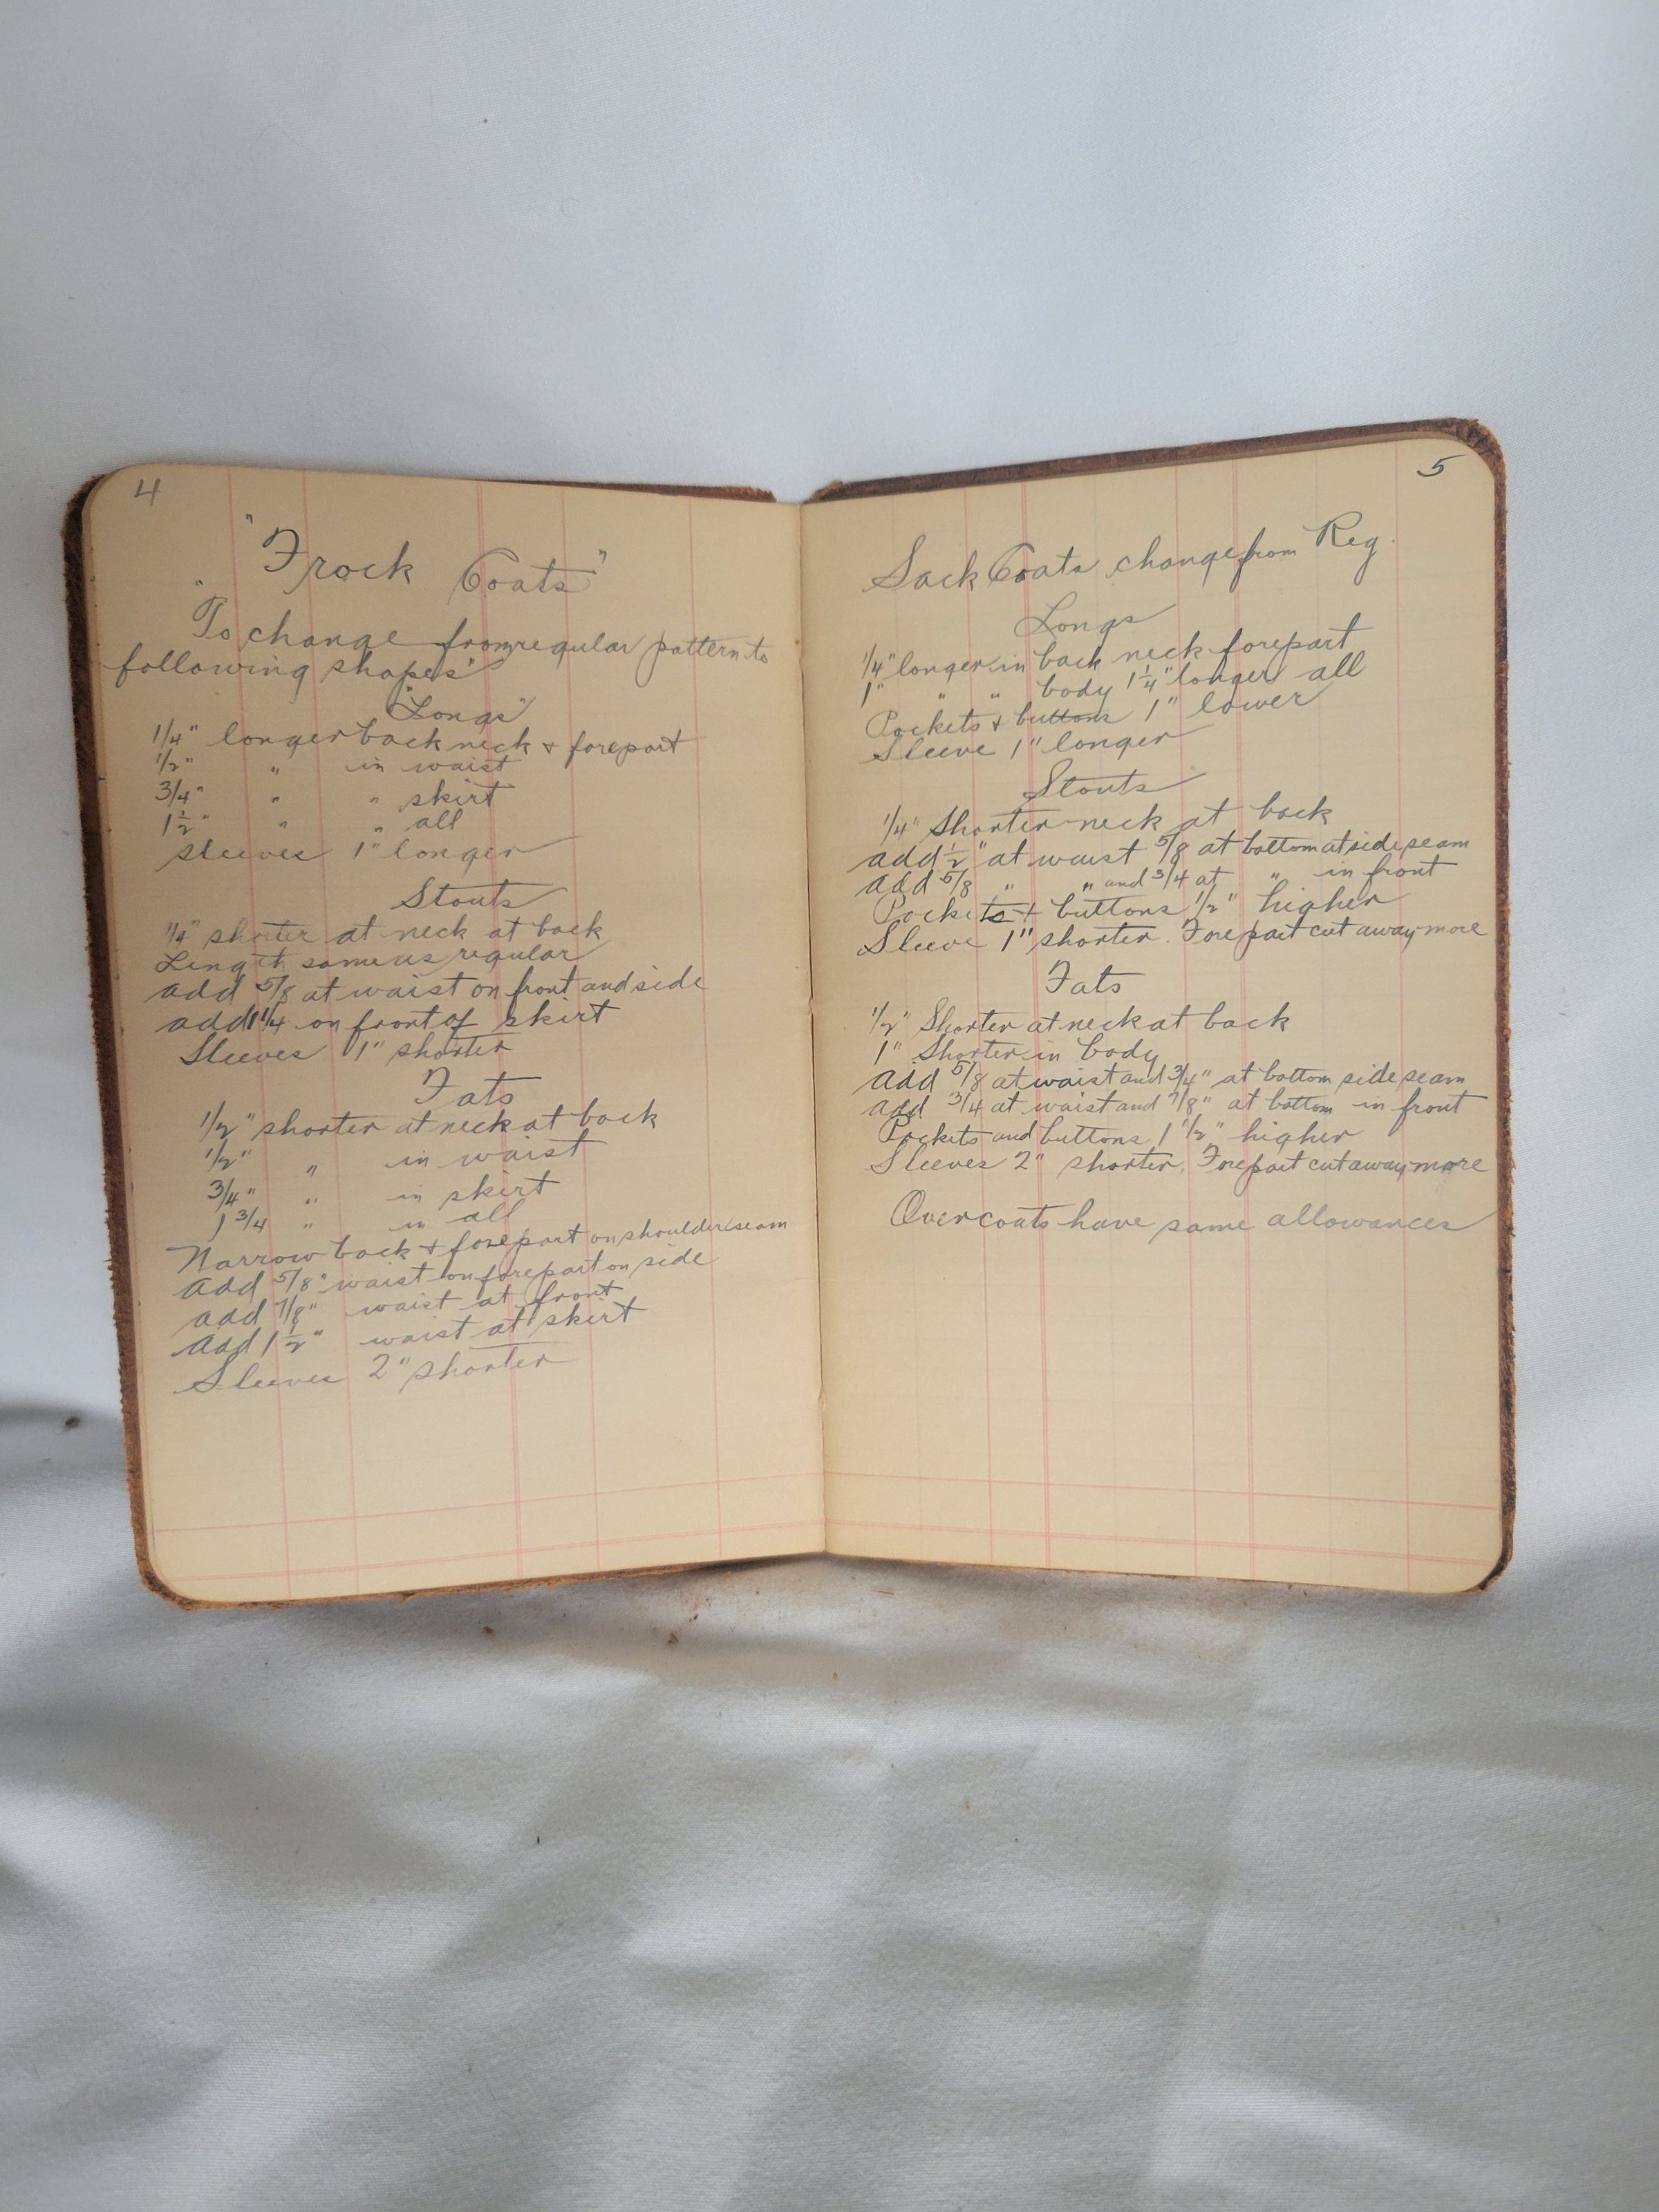 4
"Frock Coats"
"To change from regular pattern to
following shapes"
"Longs"
1/4" longer back neck + forepart
1/2" " in waist
3/4" " " skirt
1 1/2" " " all
Sleeves 1" longer
Stouts
1/4" shorter at neck at back
Length same as regular
add 5/8 at waist on front and side
add 1 1/4 on front of skirt
Sleeves 1" shorter
Fats
1/2" shorter at neck at back
1/2" " in waist
3/4" " in skirt
1 3/4 " in all
Narrow back + forepart on shoulder seam
add 5/8" waist on forepart on side
add 7/8" waist at front
add 1 1/2" waist at skirt
Sleeves 2" shorter
5
Sack Coats change from Reg.
Longs
1/4" longer in back neck forepart
1" " " body 1 1/4" longer all
Pockets + buttons 1" lower
Sleeve 1" longer
Stouts
1/4" Shorter neck at back
add 1/2" at waist 5/8 at bottom at side seam
add 5/8 " " and 3/4 at " in front
Pockets + buttons 1/2" higher
Sleeve 1" shorter. Forepart cut away more
Fats
1/2" Shorter at neck at back
1" Shorter in body
add 5/8 at waist and 3/4" at bottom side seam
add 3/4 at waist and 7/8" at bottom in front
Pockets and buttons 1 1/2" higher
Sleeves 2" shorter. Forepart cut away more
Overcoats have same allowances